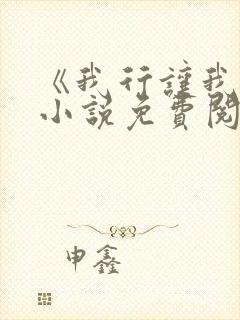 《我行讓我
小說免費閱
申鑫